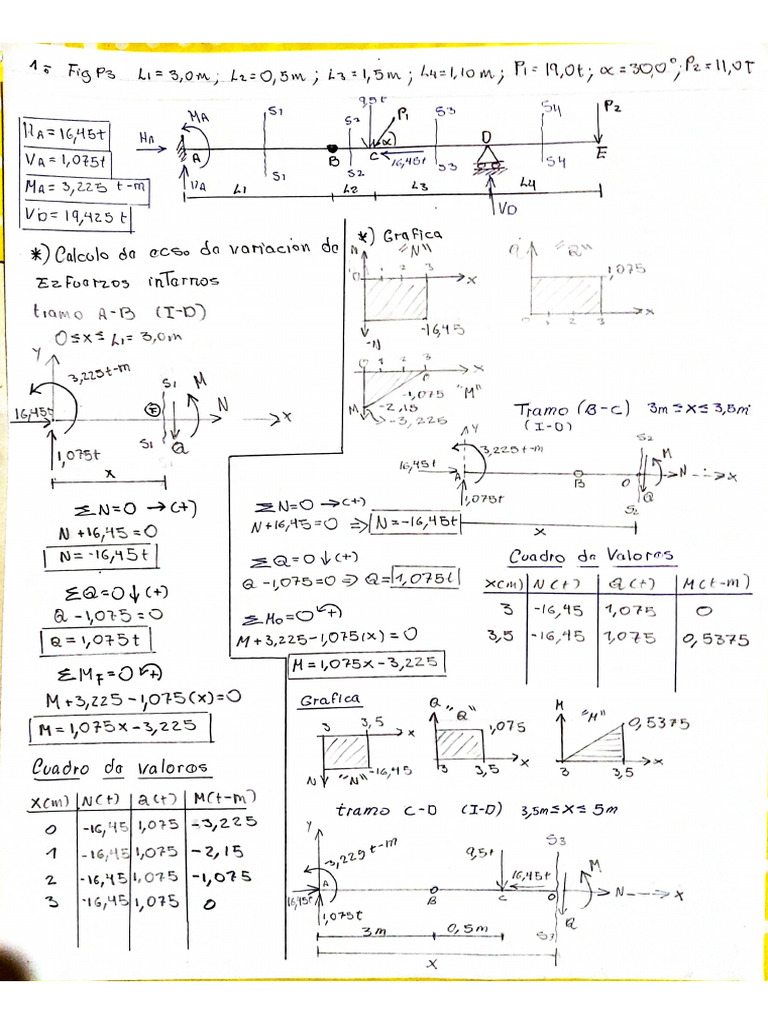 1.- Fig P3 L1 = 3,0m ; L2 = 0,5m ; L3 = 1,5m ; L4 = 1,10m ; P1 = 19,0t ; α = 30,0° ; P2 = 11,0T
HA = 16,45t
VA = 1,075t
MA = 3,225 t-m
VD = 19,425t
MA S1 S2 9,5t P1 S3 S4 P2
HA A B C α 16,45t D E
S1 S2 S3 S4
VA L1 L2 L3 L4
VD
*) Calculo de ecso de variacion de
Esfuerzos internos
tramo A-B (I-D)
0 ≤ x ≤ L1 = 3,0m
Y 3,225t-m S1 M N
16,45t F X
1,075t S1 Q
x
ΣN=0 → (+)
N+16,45=0
N=-16,45t
ΣQ=0 ↓ (+)
Q-1,075=0
Q=1,075t
ΣMF=0 (+)
M+3,225-1,075(x)=0
M=1,075x-3,225
Cuadro de valores
X(m) N(t) Q(t) M(t-m)
0 -16,45 1,075 -3,225
1 -16,45 1,075 -2,15
2 -16,45 1,075 -1,075
3 -16,45 1,075 0
*) Grafica
N "N" Q "Q"
0 1 2 3 x 1,075
-16,45 0 1 2 3 x
-N
0 1 2 3 x
-1,075 "M"
M -2,15
-3,225
Tramo (B-C) 3m ≤ x ≤ 3,5m
(I-D)
Y 3,225t-m S2 M
16,45t A B O N X
1,075t S2 Q
x
ΣN=0 → (+)
N+16,45=0 ⇒ N=-16,45t
ΣQ=0 ↓ (+)
Q-1,075=0 ⇒ Q=1,075t
ΣMo=0 (+)
M+3,225-1,075(x)=0
M=1,075x-3,225
Cuadro de Valores
X(m) N(t) Q(t) M(t-m)
3 -16,45 1,075 0
3,5 -16,45 1,075 0,5375
Grafica
3 3,5 x Q "Q" 1,075 M "M" 0,5375
N "N" -16,45 3 3,5 x 3 3,5 x
tramo C-D (I-D) 3,5m ≤ x ≤ 5m
Y 3,225t-m 9,5t S3 M
A 16,45t B C O N X
16,45t 1,075t S3 Q
3m 0,5m
x